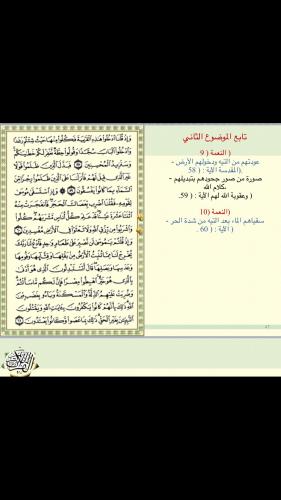 تابع الموضوع الثاني
( النعمة ( 9
عودتهم من التيه ودخولهم الأرض -
.(المقدسة الآية : ( 58
صورة من صور جحودهم بتبديلهم -
كلام الله
( وعقوبة الله لهم الآية : ( 59.
(النعمة (10
سقياهم الماء بعد التيه من شدة الحر -
. ( الآية : ( 60
وَإِذْ قُلْنَا ٱدْخُلُوا۟ هَٰذِهِ ٱلْقَرْيَةَ فَكُلُوا۟ مِنْهَا حَيْثُ شِئْتُمْ رَغَدًا
وَٱدْخُلُوا۟ ٱلْبَابَ سُجَّدًا وَقُولُوا۟ حِطَّةٌ نَّغْفِرْ لَكُمْ خَطَٰيَٰكُمْ
وَسَنَزِيدُ ٱلْمُحْسِنِينَ ٥٨ فَبَدَّلَ ٱلَّذِينَ ظَلَمُوا۟ قَوْلًا
غَيْرَ ٱلَّذِى قِيلَ لَهُمْ فَأَنزَلْنَا عَلَى ٱلَّذِينَ ظَلَمُوا۟ رِجْزًا مِّنَ
ٱلسَّمَآءِ بِمَا كَانُوا۟ يَفْسُقُونَ ٥٩ وَإِذِ ٱسْتَسْقَىٰ مُوسَىٰ
لِقَوْمِهِۦ فَقُلْنَا ٱضْرِب بِّعَصَاكَ ٱلْحَجَرَ فَٱنفَجَرَتْ مِنْهُ
ٱثْنَتَا عَشْرَةَ عَيْنًا قَدْ عَلِمَ كُلُّ أُنَاسٍ مَّشْرَبَهُمْ كُلُوا۟
وَٱشْرَبُوا۟ مِن رِّزْقِ ٱللَّهِ وَلَا تَعْثَوْا۟ فِى ٱلْأَرْضِ مُفْسِدِينَ ٦٠
وَإِذْ قُلْتُمْ يَٰمُوسَىٰ لَن نَّصْبِرَ عَلَىٰ طَعَامٍ وَٰحِدٍ فَٱدْعُ لَنَا رَبَّكَ
يُخْرِجْ لَنَا مِمَّا تُنۢبِتُ ٱلْأَرْضُ مِنۢ بَقْلِهَا وَقِثَّآئِهَا وَفُومِهَا
وَعَدَسِهَا وَبَصَلِهَا قَالَ أَتَسْتَبْدِلُونَ ٱلَّذِى هُوَ أَدْنَىٰ
بِٱلَّذِى هُوَ خَيْرٌ ٱهْبِطُوا۟ مِصْرًا فَإِنَّ لَكُم مَّا سَأَلْتُمْ
وَضُرِبَتْ عَلَيْهِمُ ٱلذِّلَّةُ وَٱلْمَسْكَنَةُ وَبَآءُو بِغَضَبٍ مِّنَ
ٱللَّهِ ذَٰلِكَ بِأَنَّهُمْ كَانُوا۟ يَكْفُرُونَ بِـَٔايَٰتِ ٱللَّهِ وَيَقْتُلُونَ
ٱلنَّبِيِّـۧنَ بِغَيْرِ ٱلْحَقِّ ذَٰلِكَ بِمَا عَصَوا۟ وَّكَانُوا۟ يَعْتَدُونَ ٦١